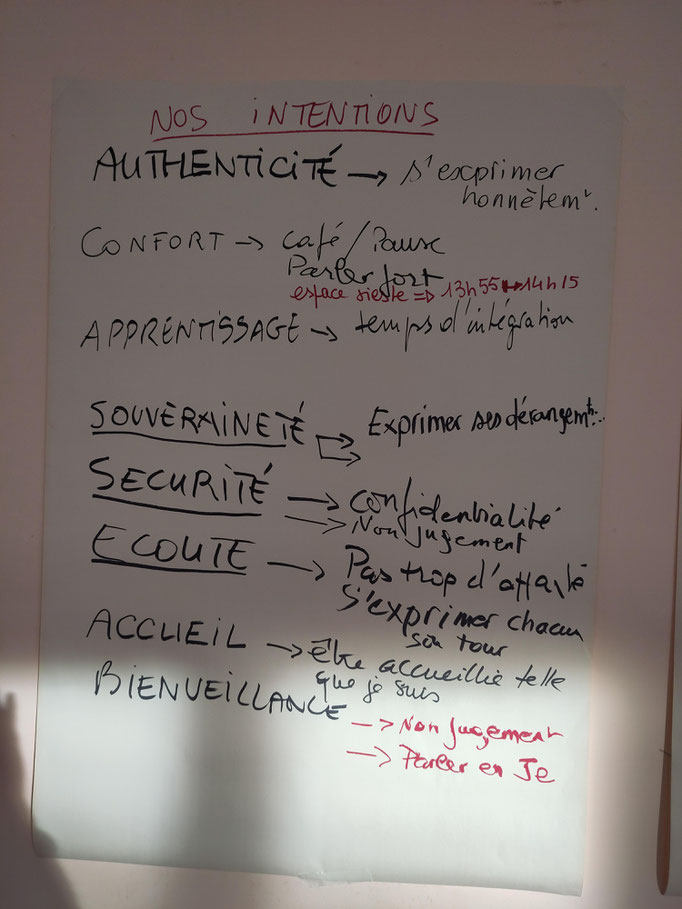 NOS INTENTIONS
AUTHENTICITÉ → s'exprimer
honnêtemt.
CONFORT → café/Pause
Parler fort
espace sieste ⇒ 13h55 ↔ 14h15
APPRENTISSAGE → temps d'intégration
SOUVERAINETÉ → Exprimer ses dérangemts...
SECURITÉ → confidentialité
→ Non jugement
ECOUTE → Pas trop d'
s'exprimer chacun
son tour
ACCUEIL → être accueillie telle
que je suis
BIENVEILLANCE
→ Non jugement
→ Parler en Je